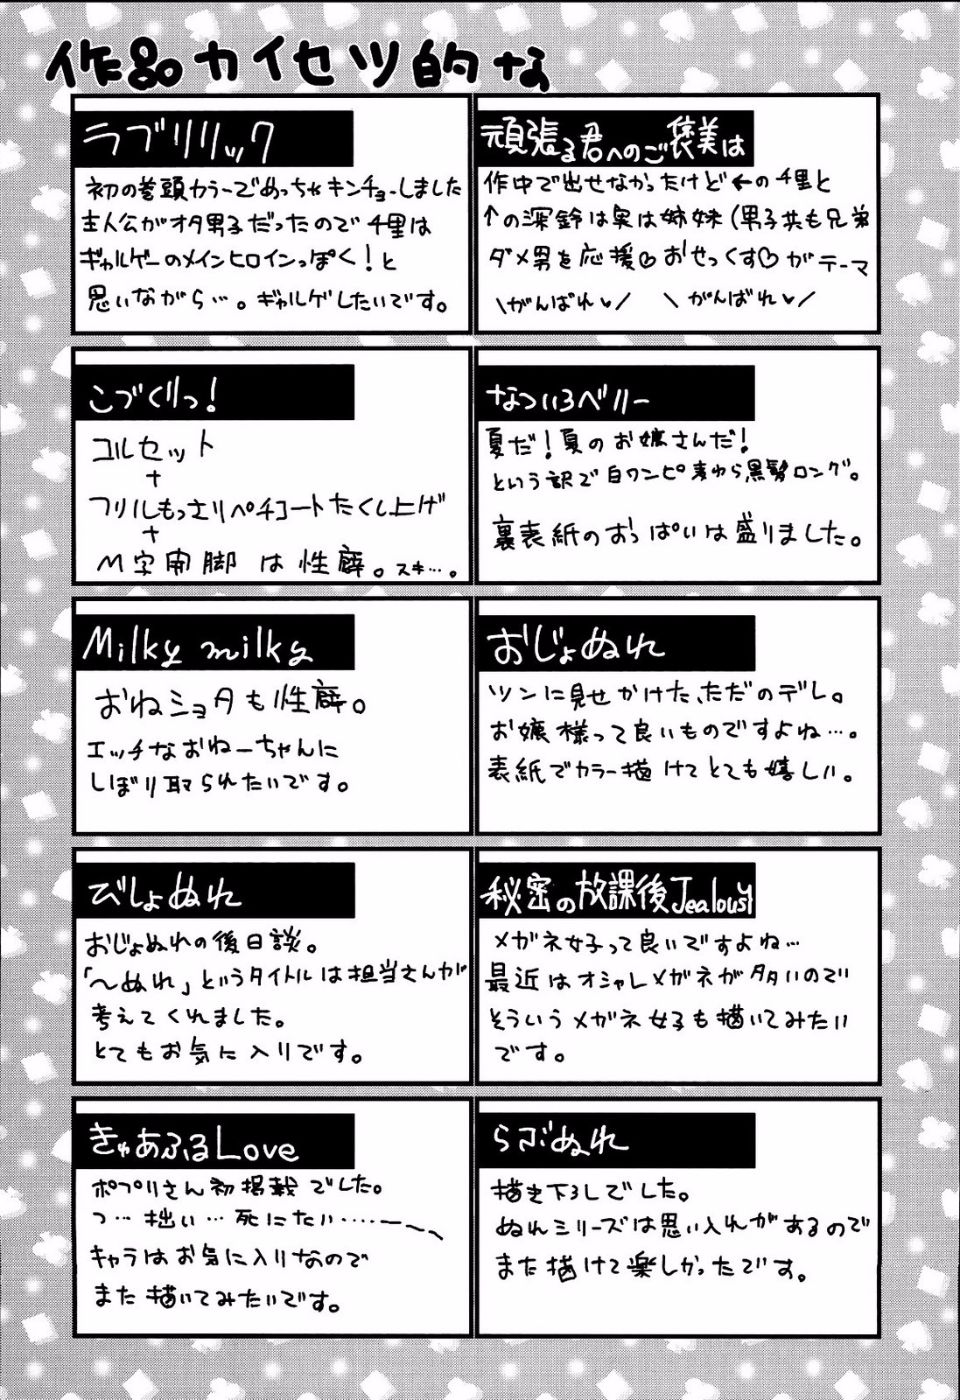 作品カイセツ的な
ラブリリック
初の巻頭カラーでめっちゃキンチョーしました
主人公がオタ男子だったので千里は
ギャルゲーのメインヒロインっぽく！と
思いながら…。ギャルゲしたいです。
頑張る君へのご褒美は
作中で出せなかったけど←の千里と
↑の深鈴は実は姉妹（男子共も兄弟
ダメ男を応援♡おせっくす♡がテーマ
＼がんばれ♥／ ＼がんばれ♥／
こづくりっ！
コルセット
+
フリルもっさりペチコートたくし上げ
+
M字開脚は性癖。スキ…。
なついろベリー
夏だ！夏のお嬢さんだ！
という訳で白ワンピ麦わら黒髪ロング。
裏表紙のおっぱいは盛りました。
Milky milky
おねショタも性癖。
エッチなおねーちゃんに
しぼり取られたいです。
おじょぬれ
ツンに見せかけた、ただのデレ。
お嬢様って良いものですよね…。
表紙でカラー描けてとても嬉しい。
びしょぬれ
おじょぬれの後日談。
「〜ぬれ」というタイトルは担当さんが
考えてくれました。
とてもお気に入りです。
秘密の放課後Jealousy
メガネ女子って良いですよね…
最近はオシャレメガネが多いので
そういうメガネ女子も描いてみたい
です。
きゅあふるLove
ポプリさん初掲載でした。
つ…拙い…死にたい……〜〜
キャラはお気に入りなので
また描いてみたいです。
らぶぬれ
描き下ろしでした。
ぬれシリーズは思い入れがあるので
また描けて楽しかったです。